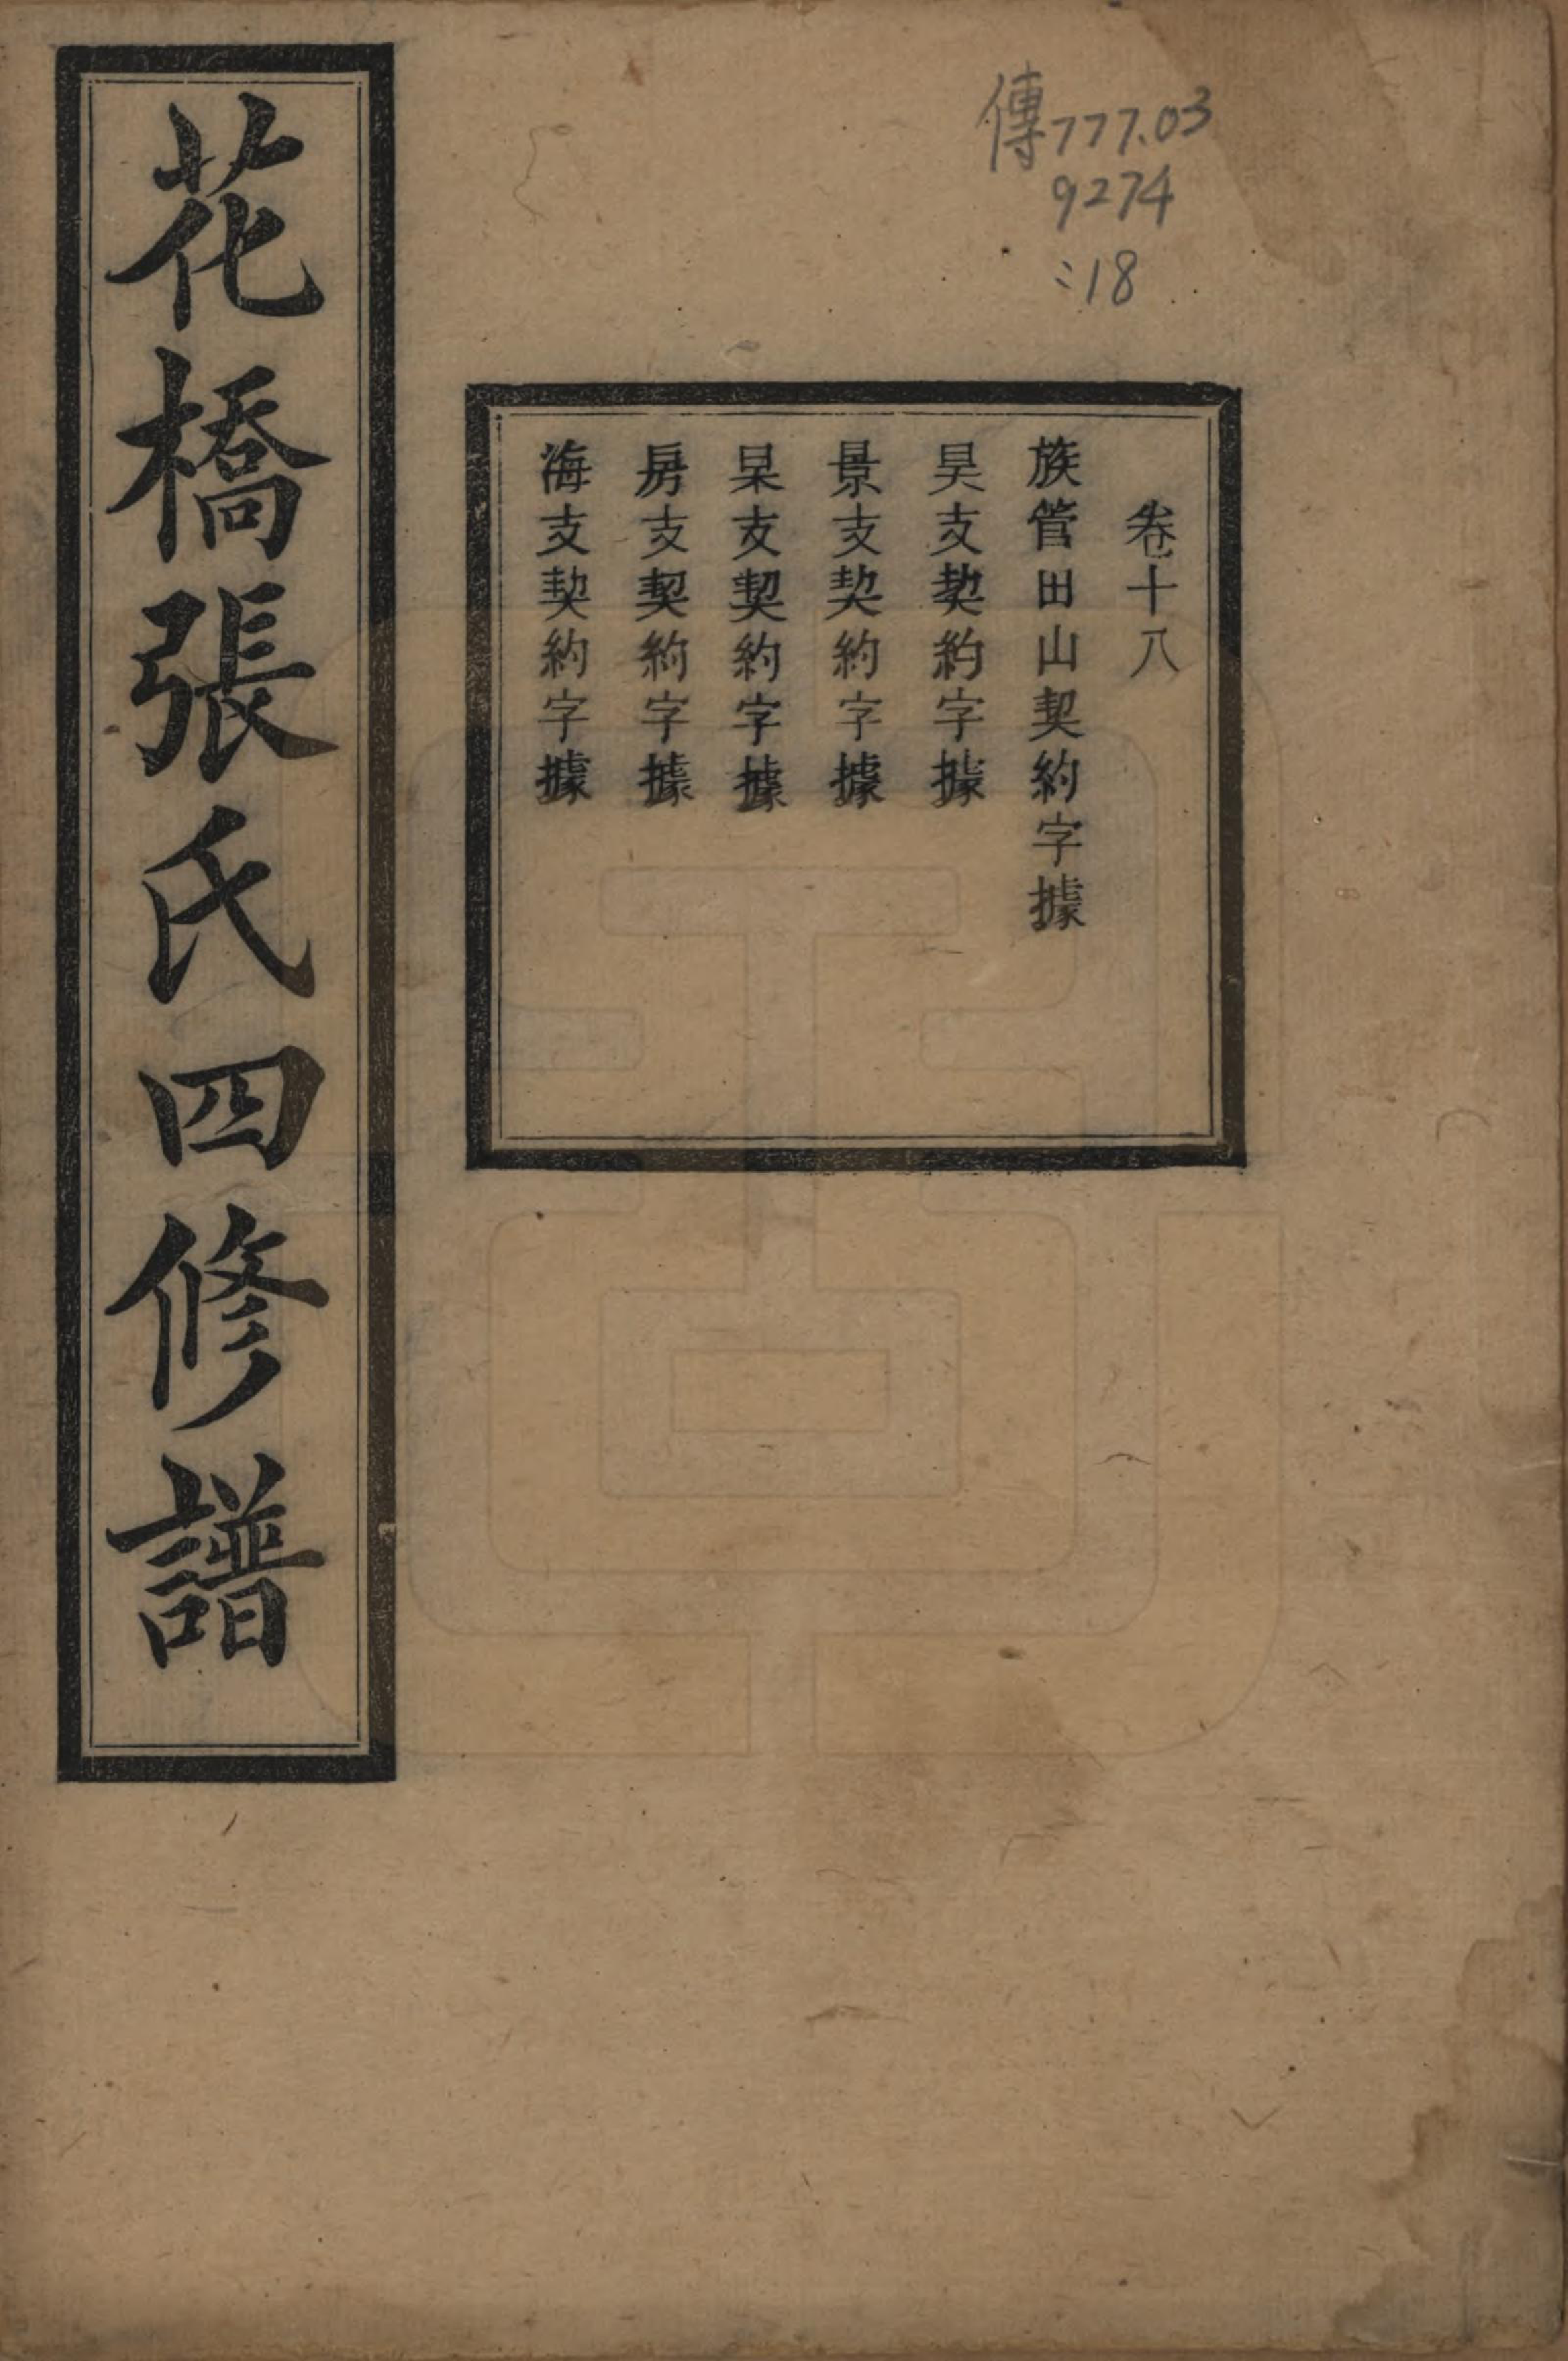 傳777.03
9274
:18
卷十八
族管田山契約字據
昊支契約字據
景支契約字據
杲支契約字據
房支契約字據
海支契約字據
花橋張氏四修譜